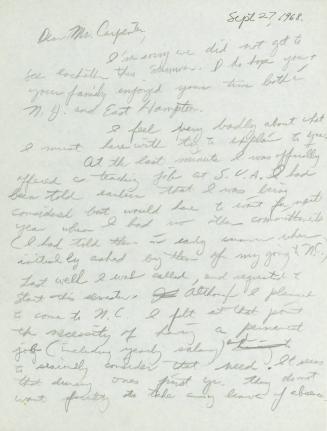 Sept 27, 1968.
Dear Mr. Carpenter,
I'm sorry we did not get to
see each other this Summer. I do hope you &
your family enjoyed your time both in
N.J. and East Hampton.
I feel very badly about what
I must herewith try to explain to you.
At the last minute I was officially
offered a teaching job at S.V.A. I had
been told earlier that I was being
considered but would have to wait for next
year when I had no other commitments
(I had told them in early summer when
initially asked by them of my going to N.C.
Last week I was called, and requested to
start this semester. Although I planned
to come to N.C. I felt at that point
the necessity of having a permanent
job (including yearly salary)
to seriously consider that need. It seems
that during ones first yr. they do not
want faculty to take any leave of absence